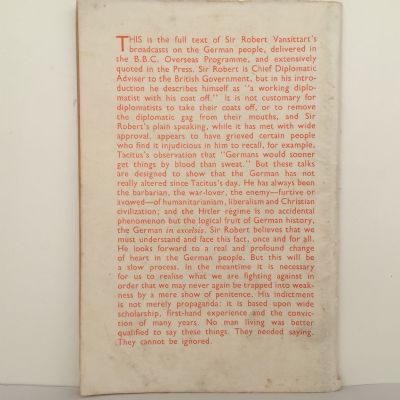 THIS is the full text of Sir Robert Vansittart's
broadcasts on the German people, delivered in
the B.B.C. Overseas Programme, and extensively
quoted in the Press. Sir Robert is Chief Diplomatic
Adviser to the British Government, but in his intro-
duction he describes himself as "a working diplo-
matist with his coat off." It is not customary for
diplomatists to take their coats off, or to remove
the diplomatic gag from their mouths, and Sir
Robert's plain speaking, while it has met with wide
approval, appears to have grieved certain people
who find it injudicious in him to recall, for example,
Tacitus's observation that "Germans would sooner
get things by blood than sweat." But these talks
are designed to show that the German has not
really altered since Tacitus's day. He has always been
the barbarian, the war-lover, the enemy—furtive or
avowed—of humanitarianism, liberalism and Christian
civilization; and the Hitler regime is no accidental
phenomenon but the logical fruit of German history,
the German in excelsis. Sir Robert believes that we
must understand and face this fact, once and for all.
He looks forward to a real and profound change
of heart in the German people. But this will be
a slow process. In the meantime it is necessary
for us to realise what we are fighting against in
order that we may never again be trapped into weak-
ness by a mere show of penitence. His indictment
is not merely propaganda: it is based upon wide
scholarship, first-hand experience and the convic-
tion of many years. No man living was better
qualified to say these things. They needed saying.
They cannot be ignored.